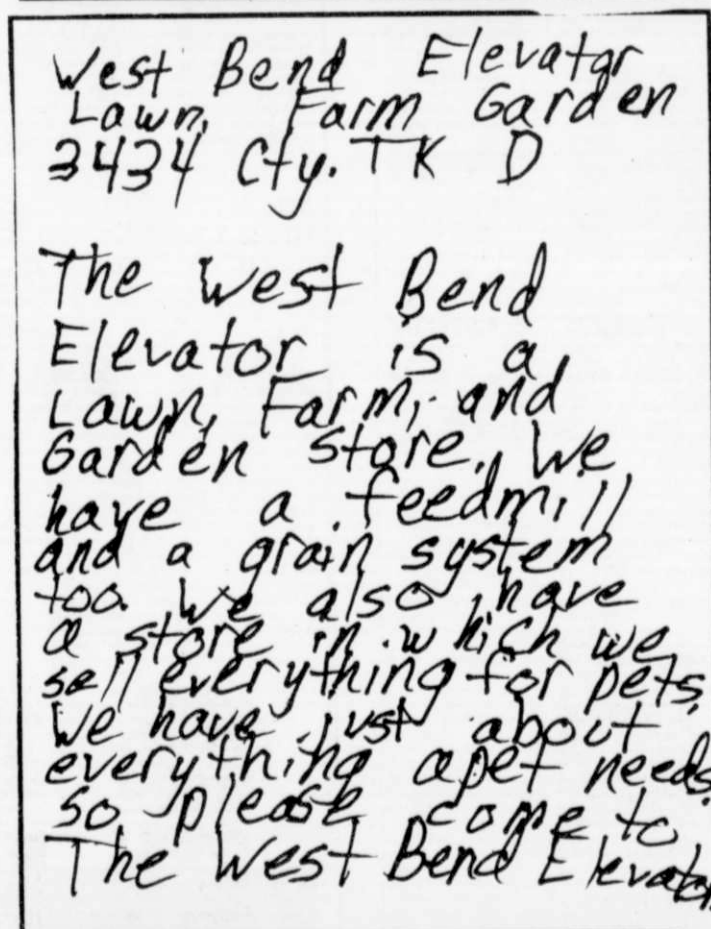 West Bend Elevator
Lawn, Farm Garden
3434 Cty. TK D
The West Bend
Elevator is a
Lawn, Farm, and
Garden store. We
have a feedmill
and a grain system
too. We also have
a store in which we
sell everything for pets.
We have just about
everything a pet needs
so please come to
The West Bend Elevator.